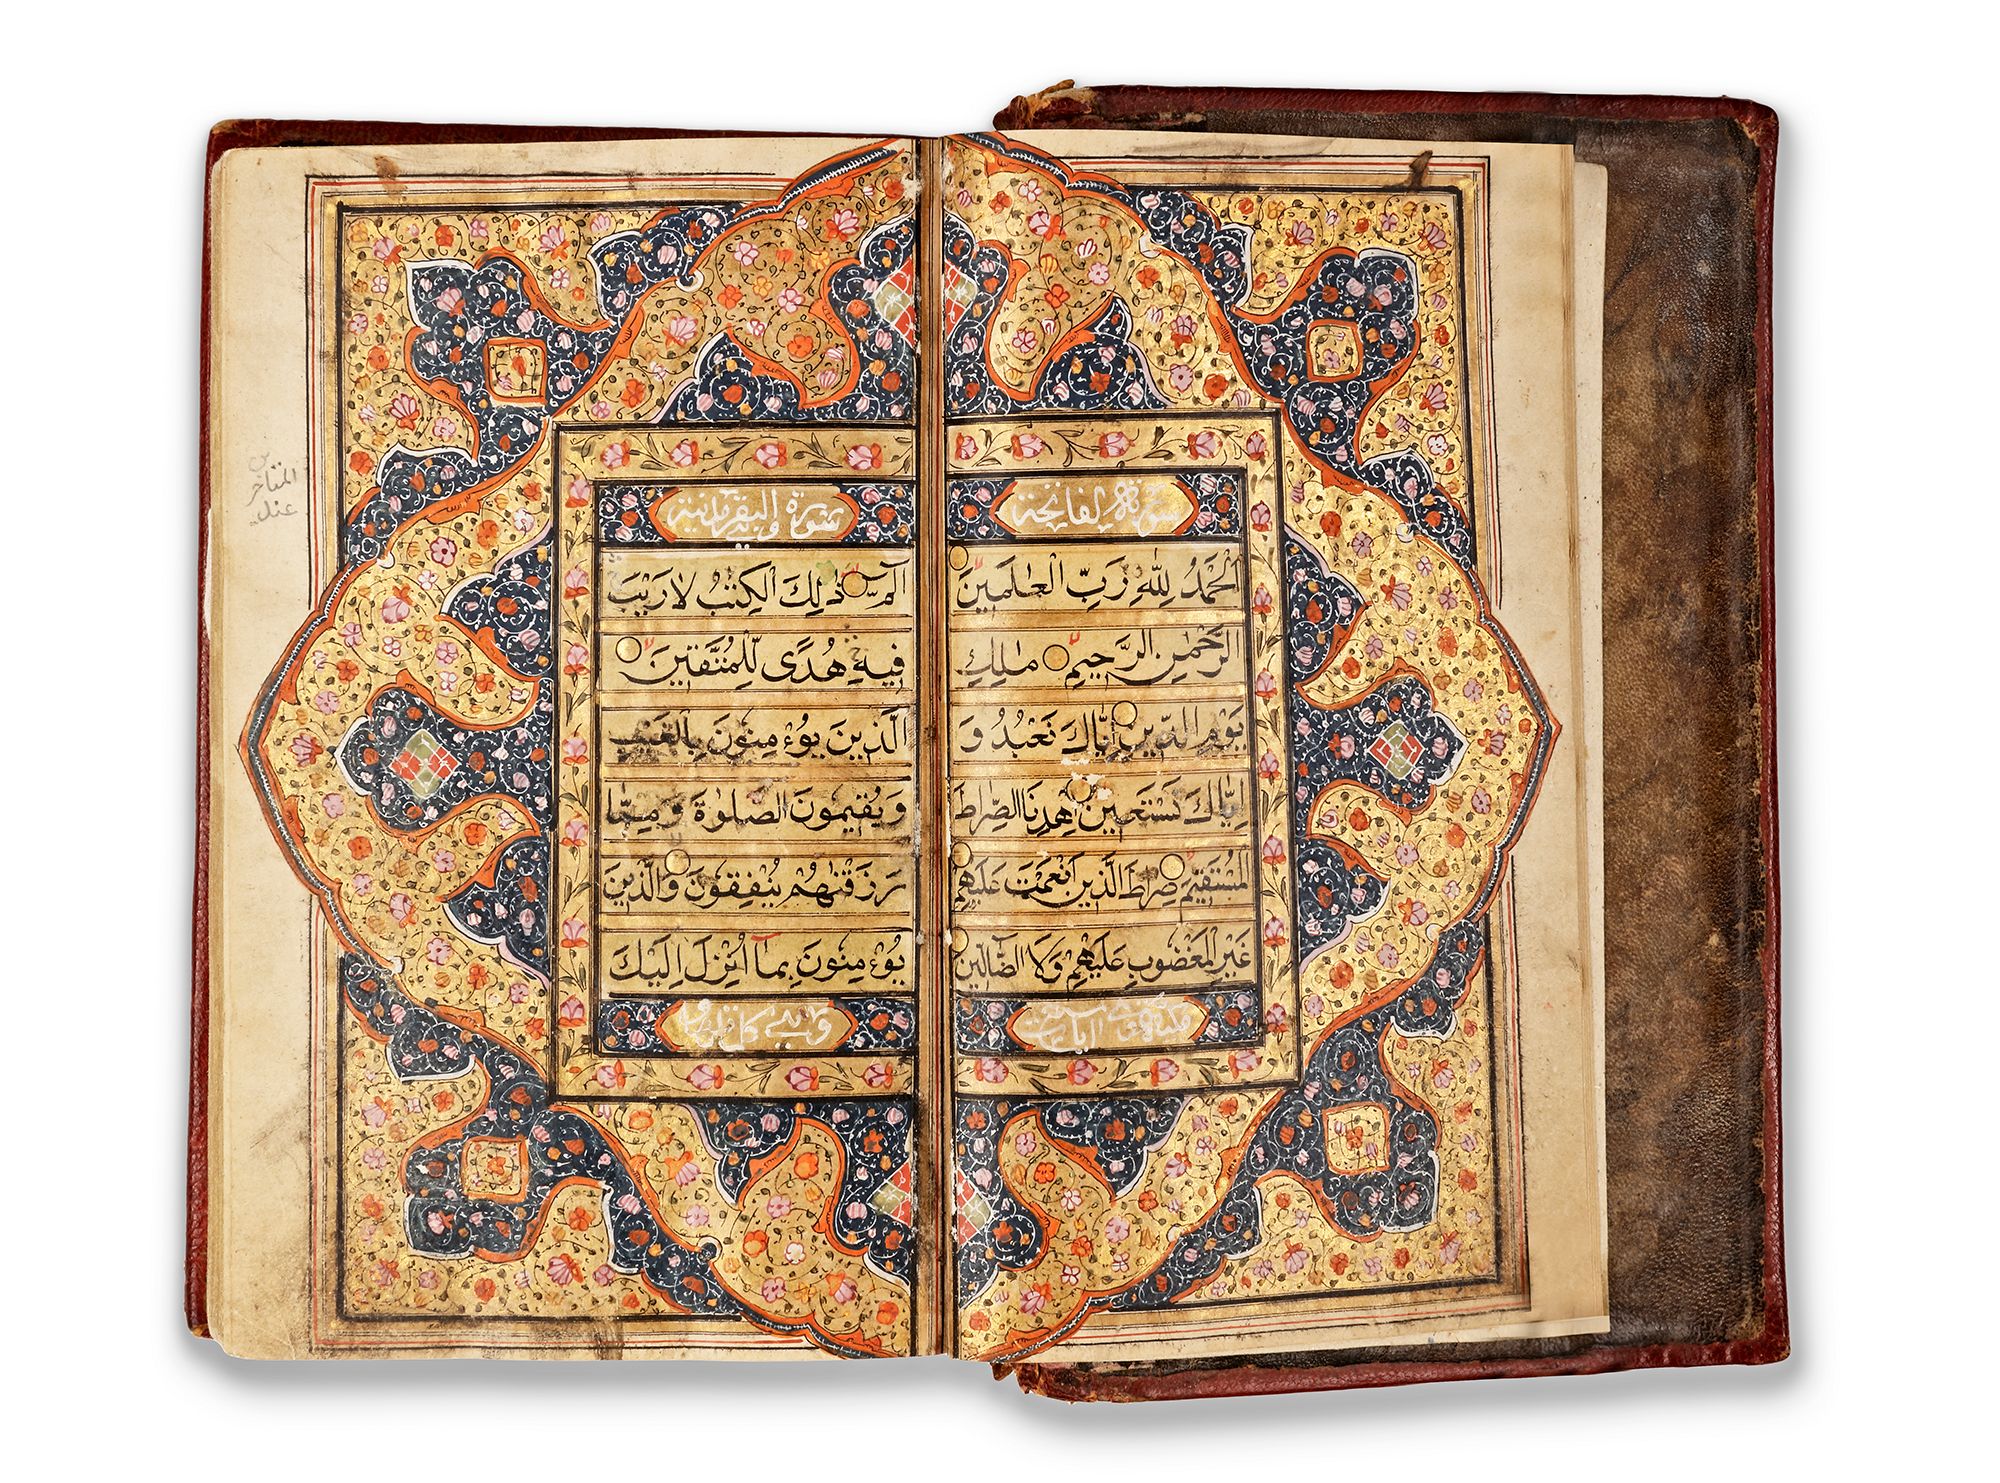 سورة الفاتحة
الحمدُ لِلّٰهِ رَبِّ الْعٰلَمِينَ
الرَّحْمٰنِ الرَّحِيمِ مٰلِكِ
يَوْمِ الدِّينِ اِيَّاكَ نَعْبُدُ وَ
اِيَّاكَ نَسْتَعِينُ اِهْدِنَا الصِّرَاطَ
الْمُسْتَقِيمَ صِرَاطَ الَّذِينَ اَنْعَمْتَ عَلَيْهِمْ
غَيْرِ الْمَغْضُوبِ عَلَيْهِمْ وَلَا الضَّالِّينَ
آيات
سورة البقر
الٓمّٓ ذٰلِكَ الْكِتٰبُ لَا رَيْبَ
فِيهِ هُدًى لِّلْمُتَّقِينَ
الَّذِينَ يُؤْمِنُونَ بِالْغَيْبِ
وَيُقِيمُونَ الصَّلٰوةَ وَمِمَّا
رَزَقْنٰهُمْ يُنْفِقُونَ وَالَّذِينَ
يُؤْمِنُونَ بِمَا اُنْزِلَ اِلَيْكَ
وهي
المتاخرين
عند